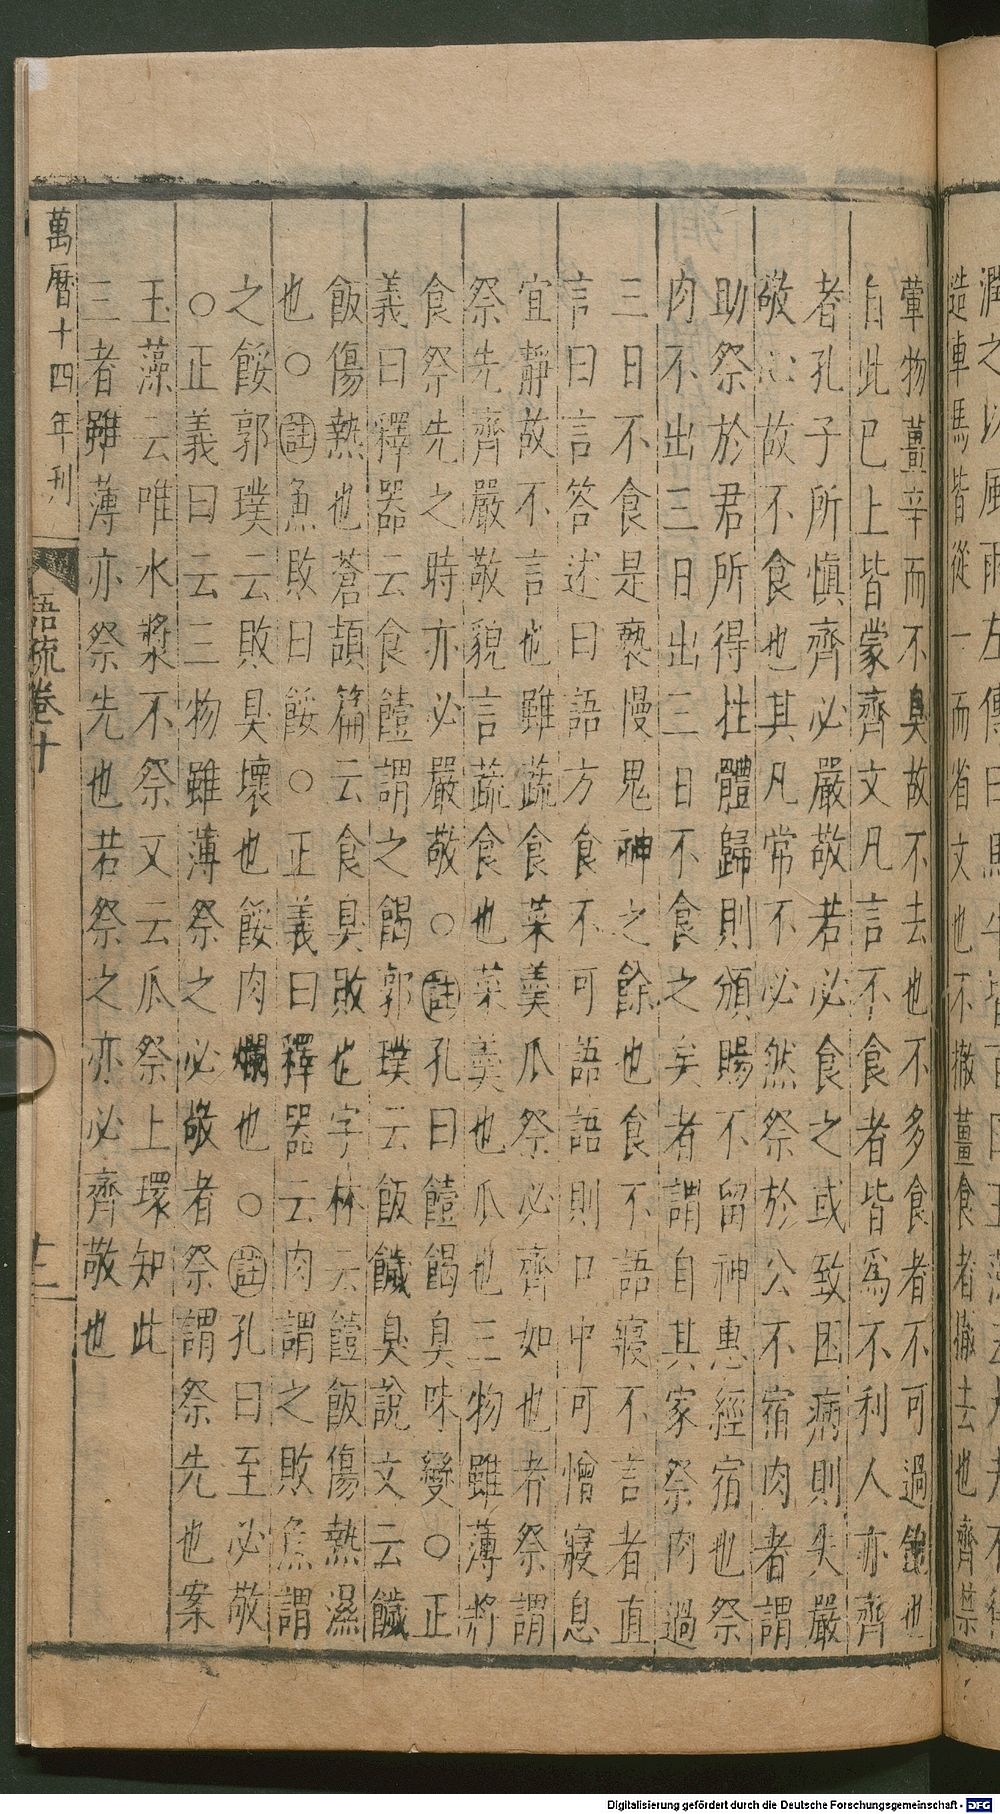 潤之以風雨左傳曰馬牛皆百匹玉藻云
造車馬皆從一而省文也不撤薑食者撤去也齊禁
葷物薑辛而不臭故不去也不多食者不可過飽也
自此已上皆蒙齊文凡言不食者皆爲不利人亦齊
者孔子所慎齊必嚴敬若必食之或致困病則失嚴
敬心故不食也其凡常不必然祭於公不宿肉者謂
助祭於君所得牲體歸則頒賜不留神惠經宿也祭
肉不出三日出三日不食之矣者謂自其家祭肉過
三日不食是褻慢鬼神之餘也食不語寢不言者直
言曰言答述曰語方食不可語語則口中可憎寢息
宜靜故不言也雖蔬食菜羹瓜祭必齊如也者祭謂
祭先齊嚴敬貌言蔬食也菜羹也瓜也三物雖薄將
食祭先之時亦必嚴敬○註孔曰饐餲臭味變○正
義曰釋器云食饐謂之餲郭璞云飯饖臭說文云饖
飯傷熱也蒼頡篇云食臭敗也字林云饐飯傷熱濕
也○註魚敗曰餒○正義曰釋器云肉謂之敗魚謂
之餒郭璞云敗臭壞也餒肉爛也○註孔曰至必敬
○正義曰云三物雖薄祭之必敬者祭謂祭先也案
玉藻云唯水漿不祭又云瓜祭上環知此
三者雖薄亦祭先也若祭之亦必齊敬也
萬曆十四年刊
語疏卷十
十二
Digitalisierung gefördert durch die Deutsche Forschungsgemeinschaft - DFG